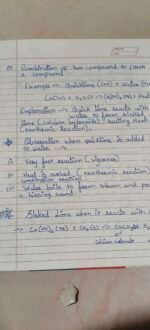 Combination of two compound to form
a compound.
Example → Quicklime (CaO) + Water (H
CaO(s) + H₂O(l) → Ca(OH)₂(aq) + Heat
Explanation → Quick lime reacts with
water to form slaked
lime (calcium hydroxide) releasing Heat
(exothermic Reaction).
Observation when quicklime is added
to water →
i) Very fast reaction (vigorous)
ii) Heat is evolved (exothermic)
combination reaction
iii) Water boils to form steam and pro
a hissing sound
Slaked lime when it reacts with
→ Ca(OH)₂(aq) + CO₂(g) → CaCO₃
calcium carbonate